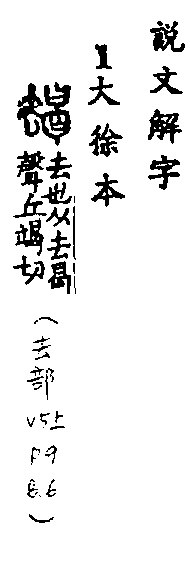 説文解字
1大徐本
朅 去也从去曷
聲丘竭切
(去部 V5上 P9 )